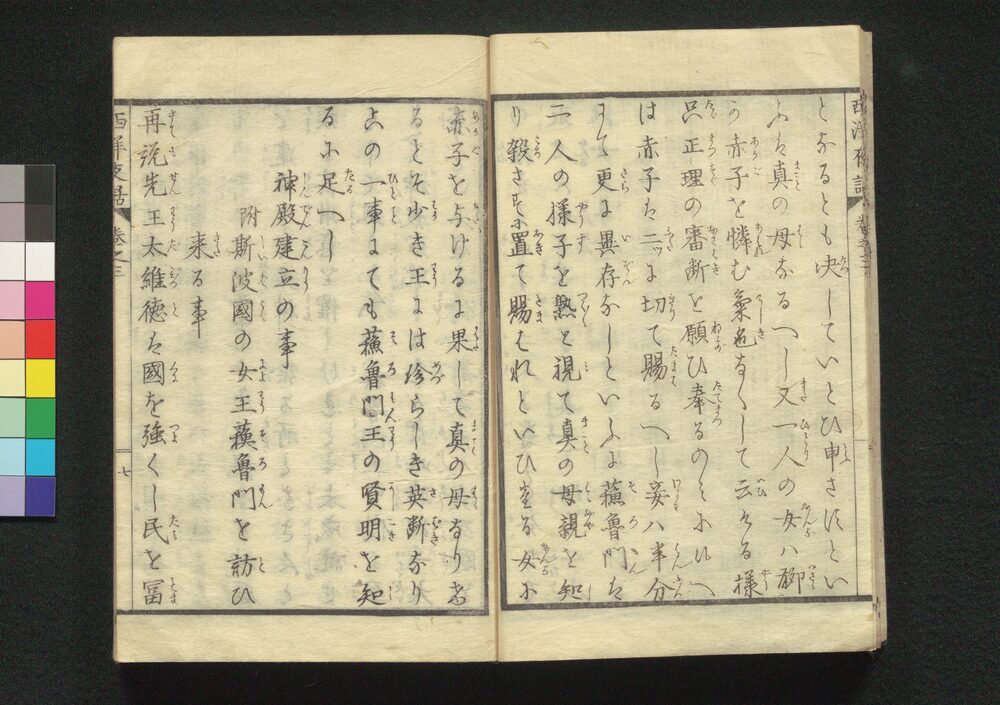 西洋夜話 卷之三
となるとも决していとひ申さずとい
ふは真の母なるへし又一人の女ハ聊
か赤子を憐む氣色なくして云ける様
只正理の審断を願ひ奉るのミに候へ
は赤子は二ツに切て賜るへし妾ハ半分
にて更に異存なしといふに蘓魯門は
二人の様子を熟と視て真の母親を知
り殺さずに置て賜はれといひたる女に
赤子を与けるに果して真の母なりき
るとそ少き王には珍らしき英断なり
この一事にても蘓魯門王の賢明を知
るに足へし
神殿建立の事
附 斯波國の女王蘓魯門を訪ひ
来る事
再説先王太維徳は國を強くし民を冨
西洋夜話 卷之三 七